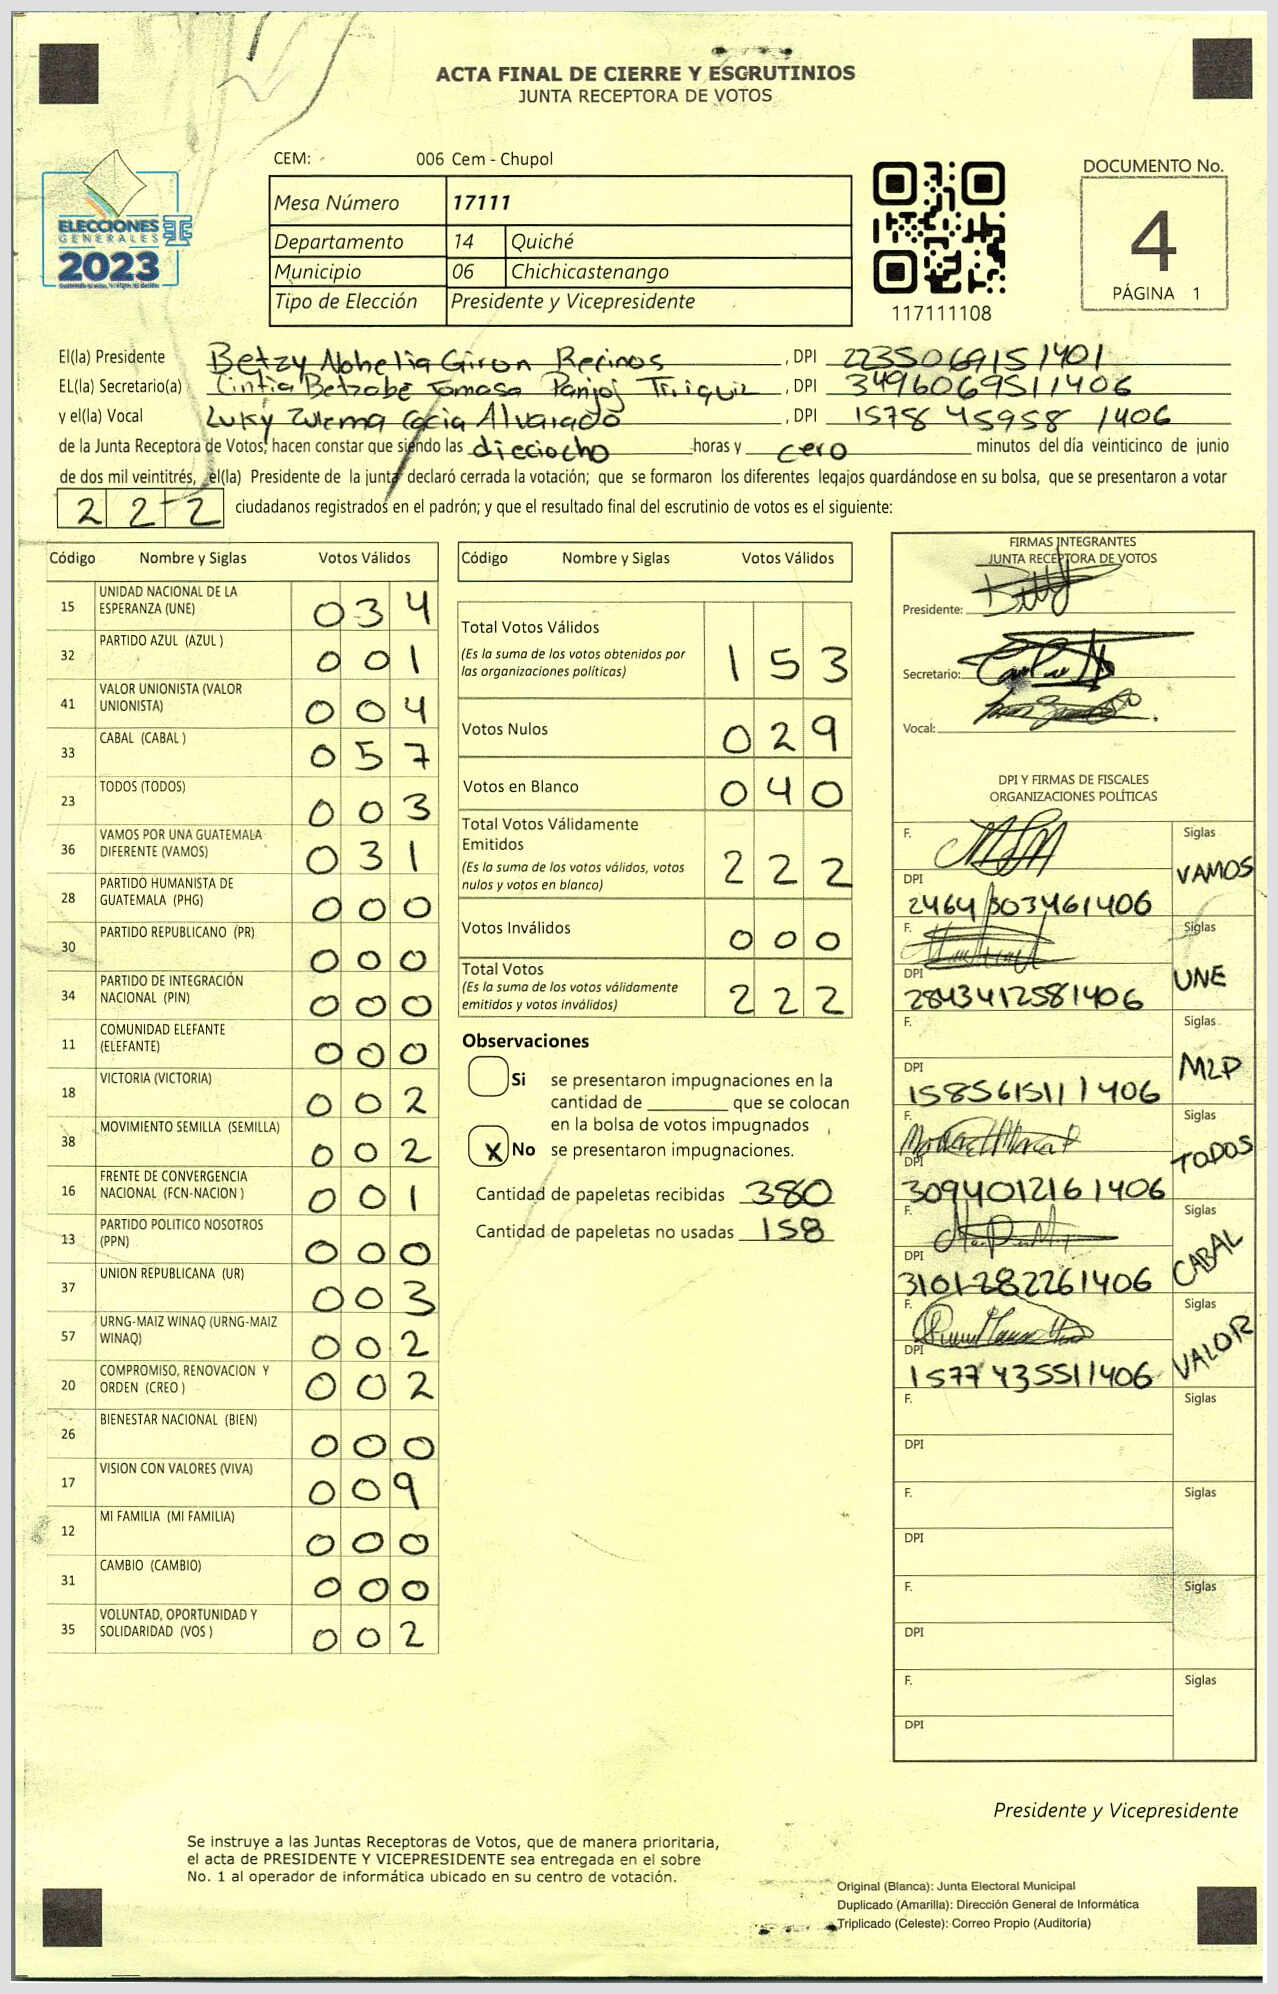 ACTA FINAL DE CIERRE Y ESCRUTINIOS
JUNTA RECEPTORA DE VOTOS
CEM: 006 Cem - Chupol
ELECCIONES
GENERALES
2023
Mesa Número 17111
Departamento 14 Quiché
Municipio 06 Chichicastenango
Tipo de Elección Presidente y Vicepresidente
117111108
DOCUMENTO No.
4
PÁGINA 1
El(la) Presidente Betzy Nohelia Giron Recinos, DPI 2235069151401
EL(la) Secretario(a) Cintia Betzabe Tomasa Panjoj Tiriquiz, DPI 3496069511406
y el(la) Vocal Luky Zulema Alvarado, DPI 1578 45958 1406
de la Junta Receptora de Votos, hacen constar que siendo las dieciocho horas y cero minutos del día veinticinco de junio
de dos mil veintitrés, el(la) Presidente de la junta declaró cerrada la votación; que se formaron los diferentes legajos guardándose en su bolsa, que se presentaron a votar
222 ciudadanos registrados en el padrón; y que el resultado final del escrutinio de votos es el siguiente:
Código Nombre y Siglas Votos Válidos
15 UNIDAD NACIONAL DE LA
ESPERANZA (UNE) 034
32 PARTIDO AZUL (AZUL ) 001
41 VALOR UNIONISTA (VALOR
UNIONISTA) 004
33 CABAL (CABAL ) 057
23 TODOS (TODOS) 003
36 VAMOS POR UNA GUATEMALA
DIFERENTE (VAMOS) 031
28 PARTIDO HUMANISTA DE
GUATEMALA (PHG) 000
30 PARTIDO REPUBLICANO (PR) 000
34 PARTIDO DE INTEGRACIÓN
NACIONAL (PIN) 000
11 COMUNIDAD ELEFANTE
(ELEFANTE) 000
18 VICTORIA (VICTORIA) 002
38 MOVIMIENTO SEMILLA (SEMILLA) 002
16 FRENTE DE CONVERGENCIA
NACIONAL (FCN-NACION ) 001
13 PARTIDO POLITICO NOSOTROS
(PPN) 000
37 UNION REPUBLICANA (UR) 003
57 URNG-MAIZ WINAQ (URNG-MAIZ
WINAQ) 002
20 COMPROMISO, RENOVACION Y
ORDEN (CREO ) 002
26 BIENESTAR NACIONAL (BIEN) 000
17 VISION CON VALORES (VIVA) 009
12 MI FAMILIA (MI FAMILIA) 000
31 CAMBIO (CAMBIO) 000
35 VOLUNTAD, OPORTUNIDAD Y
SOLIDARIDAD (VOS ) 002
Código Nombre y Siglas Votos Válidos
Total Votos Válidos
(Es la suma de los votos obtenidos por
las organizaciones políticas) 153
Votos Nulos 029
Votos en Blanco 040
Total Votos Válidamente
Emitidos
(Es la suma de los votos válidos, votos
nulos y votos en blanco) 222
Votos Inválidos 000
Total Votos
(Es la suma de los votos válidamente
emitidos y votos inválidos) 222
Observaciones
Si se presentaron impugnaciones en la
cantidad de ________ que se colocan
en la bolsa de votos impugnados
X No se presentaron impugnaciones.
Cantidad de papeletas recibidas 380
Cantidad de papeletas no usadas 158
FIRMAS INTEGRANTES
JUNTA RECEPTORA DE VOTOS
Presidente:
Secretario:
Vocal:
DPI Y FIRMAS DE FISCALES
ORGANIZACIONES POLÍTICAS
F. Siglas
VAMOS
DPI
2464303461406
F. Siglas
UNE
DPI
2843412581406
F. Siglas
MLP
DPI
1585615111406
F. Siglas
TODOS
DPI
3094012161406
F. Siglas
CABAL
DPI
3101282261406
F. Siglas
VALOR
DPI
1577435511406
F. Siglas
DPI
F. Siglas
DPI
F. Siglas
DPI
F. Siglas
DPI
Presidente y Vicepresidente
Se instruye a las Juntas Receptoras de Votos, que de manera prioritaria,
el acta de PRESIDENTE Y VICEPRESIDENTE sea entregada en el sobre
No. 1 al operador de informática ubicado en su centro de votación.
Original (Blanca): Junta Electoral Municipal
Duplicado (Amarilla): Dirección General de Informática
Triplicado (Celeste): Correo Propio (Auditoría)